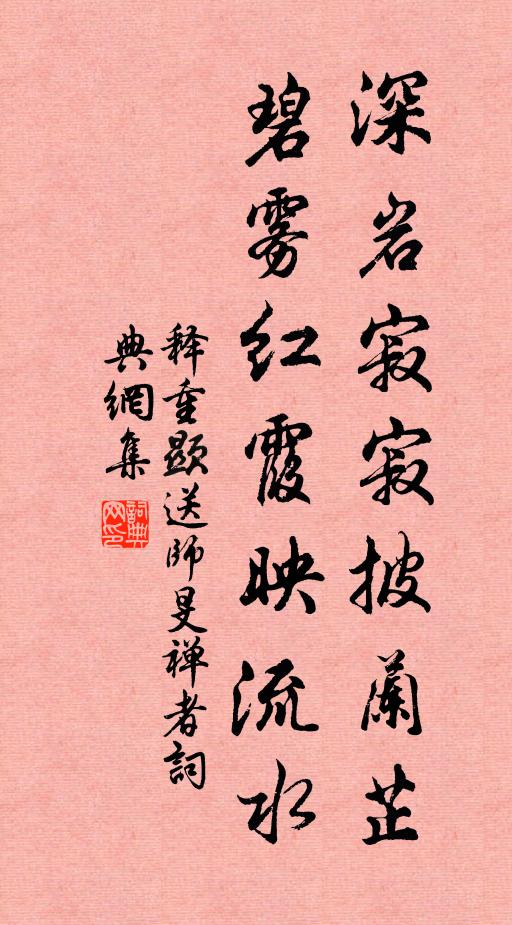 深岩寂寂披蘭芷
碧雾红霞映流水
释重顯送师旻禅者詞
典網集
詞典
网印